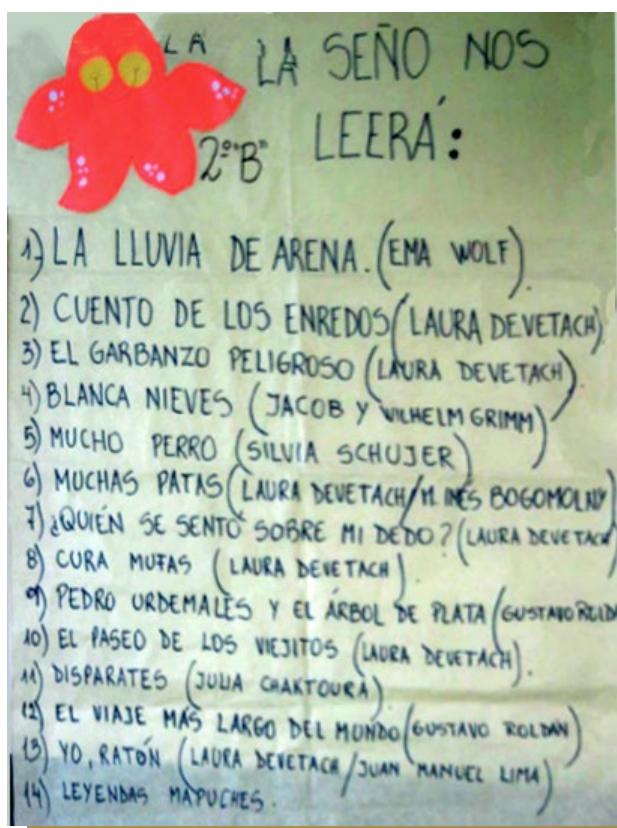 LA LA SEÑO NOS
2º "B" LEERÁ:
1) LA LLUVIA DE ARENA. (EMA WOLF).
2) CUENTO DE LOS ENREDOS (LAURA DEVETACH)
3) EL GARBANZO PELIGROSO (LAURA DEVETACH).
4) BLANCA NIEVES (JACOB Y WILHELM GRIMM)
5) MUCHO PERRO (SILVIA SCHUJER)
6) MUCHAS PATAS (LAURA DEVETACH/M. INÉS BOGOMOLNY)
7) ¿QUIÉN SE SENTÓ SOBRE MI DEDO? (LAURA DEVETACH)
8) CURA MUFAS (LAURA DEVETACH).
9) PEDRO URDEMALES Y EL ÁRBOL DE PLATA (GUSTAVO ROLDÁ
10) EL PASEO DE LOS VIEJITOS (LAURA DEVETACH).
11) DISPARATES (JULIA CHAKTOURA)
12) EL VIAJE MÁS LARGO DEL MUNDO (GUSTAVO ROLDÁN)
13) YO, RATÓN (LAURA DEVETACH/JUAN MANUEL LIMA)
14) LEYENDAS MAPUCHES.